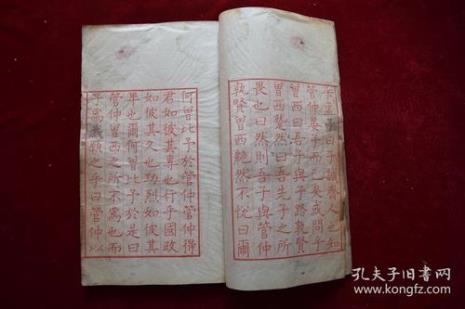 曰子誠齊人也知
管仲晏子而已矣或問乎
曾西曰吾子與子路孰賢
曾西蹵然曰吾先子之所
畏也曰然則吾子與管仲
孰賢曾西艴然不悅曰爾
何曾比予於管仲管仲得
君如彼其專也行乎國政
如彼其久也功烈如彼其
卑也爾何曾比予於是曰
管仲曾西之所不爲也而
子爲我願之乎曰管仲以
孔夫子旧书网
www.kongfz.com